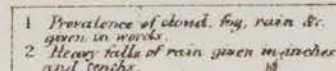 1 Prevalence of cloud, fog, rain &c.
given in words.
2 Heavy falls of rain given in inches
and tenths.